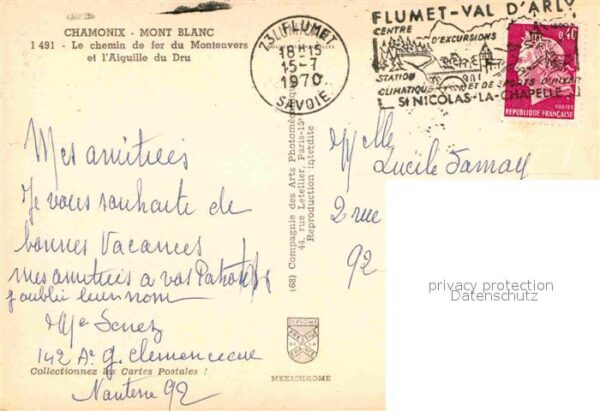 CHAMONIX - MONT BLANC
1 491 - Le chemin de fer du Montenvers
et l'Aiguille du Dru
73 FLUMET
18H15
15-7
1970
SAVOIE
FLUMET-VAL D'ARLY
CENTRE
D'EXCURSIONS
STATION
CLIMATIQUE ET DE SPORTS D'HIVER
St NICOLAS-LA-CHAPELLE
0,40
POSTES
REPUBLIQUE FRANÇAISE
Mes amitiées
Je vous souhaite de
bonnes Vacances
mes amitiées a vos
j'oublie leur nom
Mme Senez
142 Av g. Clemenceau
Nanterre 92
Collectionnez les Cartes Postales !
(68) Compagnie des Arts Photomécaniques
44, rue Letellier, Paris-15e
Reproduction interdite
MEXICHROME
Melle
Lucile
2 rue
92
privacy protection
Datenschutz